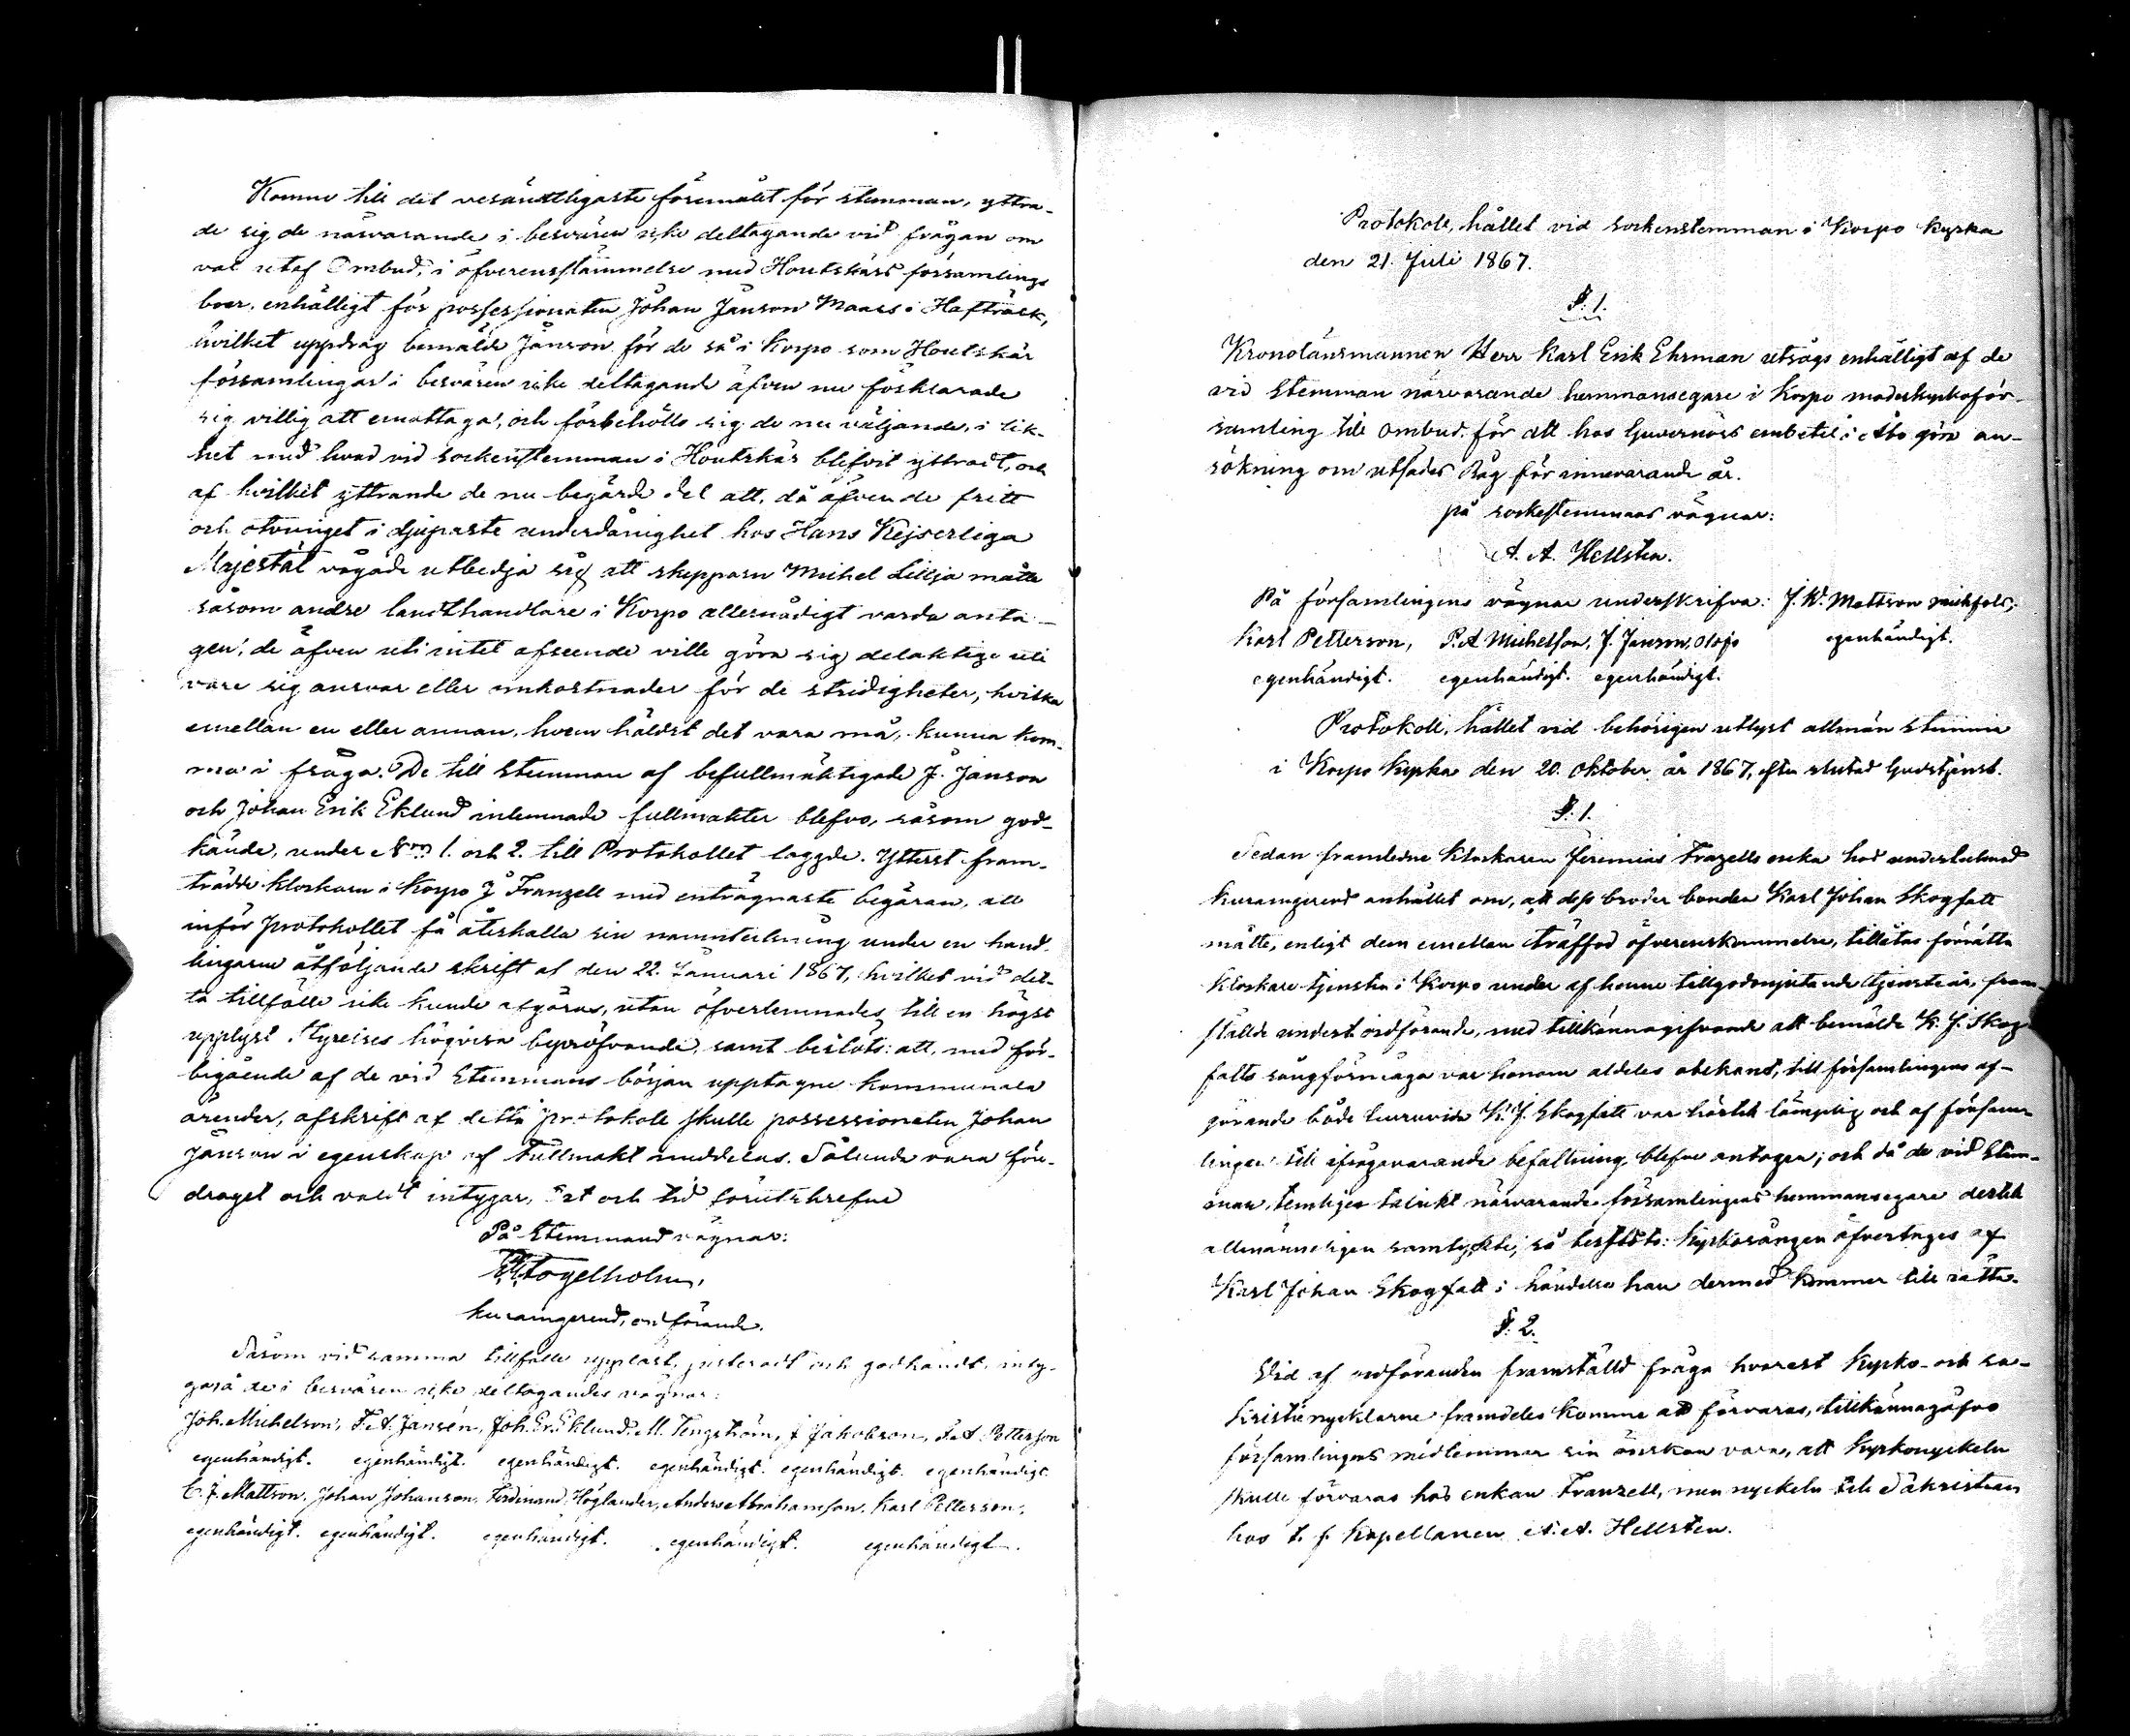 Komne till det vesändtligaste föremålet för stemman, yttra-
de sig de närvarande i besvären icke deltagande vid frågan om
val utaf Ombud, i öfverensstämmelse med Houtskärs församlings
boer, enhälligt för possessionaten Johan Janson Maass i Hafträsk,
hvilket uppdrag bemälde Janson för de så i Korpo som Houtskär
församlingar i besvären icke deltagande äfven nu förklarade
sig villig att emottaga, och förbehöllo sig de nu väljande, i lik-
het med hvad vid sockenstemman i Houtskär blefvit yttradt, och
af hvilket yttrande de nu begärde del att, då äfven de fritt
och otvunget i djupaste underdånighet hos Hans Kejserliga
Majestät vågade utbedja sig att skepparn Michel Lillja måtte
såsom andre landthandlare i Korpo allernådigt varda anta-
gen, de äfven uti intet afseende ville göra sig delaktige uti
vare sig ansvar eller omkostnader för de stridigheter, hvilka
emellan en eller annan, hvem häldst det vara må, kunna kom-
ma i fråga. De till stemman af befullmäktigade J. Janson
och Johan Erik Eklund inlemnade fullmakter blefvo, såsom god-
kände, under N:ris 1. och 2. till Protokollet laggde. Ytterst fram-
trädde klockarn i Korpo J. Franzell med enträgnaste begäran, att
inför protokollet få återkalla sin namnteckning under en hand-
lingarne åtföljande skrift af den 22. Januari 1867, hvilket vid det-
ta tillfälle icke kunde afgöras, utan öfverlemnades till en högst
upplyst Styrelses högvisa bepröfvande, samt beslöts: att, med för-
bigående af de vid Stemmans början upptagne kommunala
ärender, afskrift af detta protokoll skulle possessionaten Johan
Janson i egenskap af fullmakt meddelas. Sålunda vara för-
draget och valdt intygar, Ort och tid förutskrefne
På Stemmans vägnar:
Fogelholm,
kuraingerend, ordförande.
Såsom vid samma tillfälle uppläst, justeradt och godkändt, inty-
ga så de i besvären icke deltagandes vägnar:
Joh. Michelson, F. A. Jansén, Joh. Er. Eklund. M. Tengström, J Jakobson, F. A. Petterson
egenhändigt. egenhändigt. egenhändigt. egenhändigt. egenhändigt. egenhändigt.
C. J. Mattson. Johan Johanson. Ferdinand Höglander, Anders Abrahamson. Karl Petterson.
egenhändigt. egenhändigt. egenhändigt. egenhändigt. egenhändigt.
Protokoll, hållet vid sockenstemman i Korpo kyrka
den 21. Juli 1867.
§. 1.
Kronolänsmannen Herr Karl Erik Ehrman utsågs enhälligt af de
vid Stemman närvarande hemmansegare i Korpo moderkyrkoför-
samling till ombud för att hos Guvernörs embetet i Åbo göra an-
sökning om utsädes Råg för innevarande år.
på sockestemmans vägnar:
A. A. Hellsten.
På församlingens vägnar underskrifva: J. W. Mattson
Karl Petterson, P. A Michelson, J. Janson, egenhändigt.
egenhändigt. egenhändigt. egenhändigt.
Protokoll, hållet vid behörigen utlyst allmän stemma
i Korpo kyrka den 20. Oktober år 1867, efter slutad Gudstjenst.
§. 1.
Sedan framledne klockaren Jeremias Franzells enka hos undertecknad
kuraingerend anhållet om, att dess broder bonden Karl Johan Skogfalt
måtte, enligt dem emellan träffad öfverenskommelse, tillåtas förrätta
klockare tjensten i Korpo under af henne tillgodonjutande tjensteår, fram-
ställde underteck. ordförande, med tillkännagifvande att bemälde K. J. Skog-
falts sångförmåga var honom aldeles obekant, till församlingens af-
görande både huruvida K. J. Skogfalt var härtill lämplig och af försam-
lingen till ifrågavarande befattning blefve antagen; och då de vid Stem-
man temligen talrikt närvarande församlingens hemmansegare dertill
allmänneligen samtyckte, så beslöts: kyrkosången öfvertages af
Karl Johan Skogfalt i händelse han dermed kommer till rätta.
§. 2.
Vid af ordföranden framställd fråga hvarest kyrko- och sa-
kristienycklarne framdeles komme att förvaras, tillkännagåfvo
församlingens medlemmar sin önskan vara, att kyrkonyckeln
skulle förvaras hos enkan Franzell, men nyckeln till Sakristian
hos t. f. Kapellanen A. A. Hellsten.